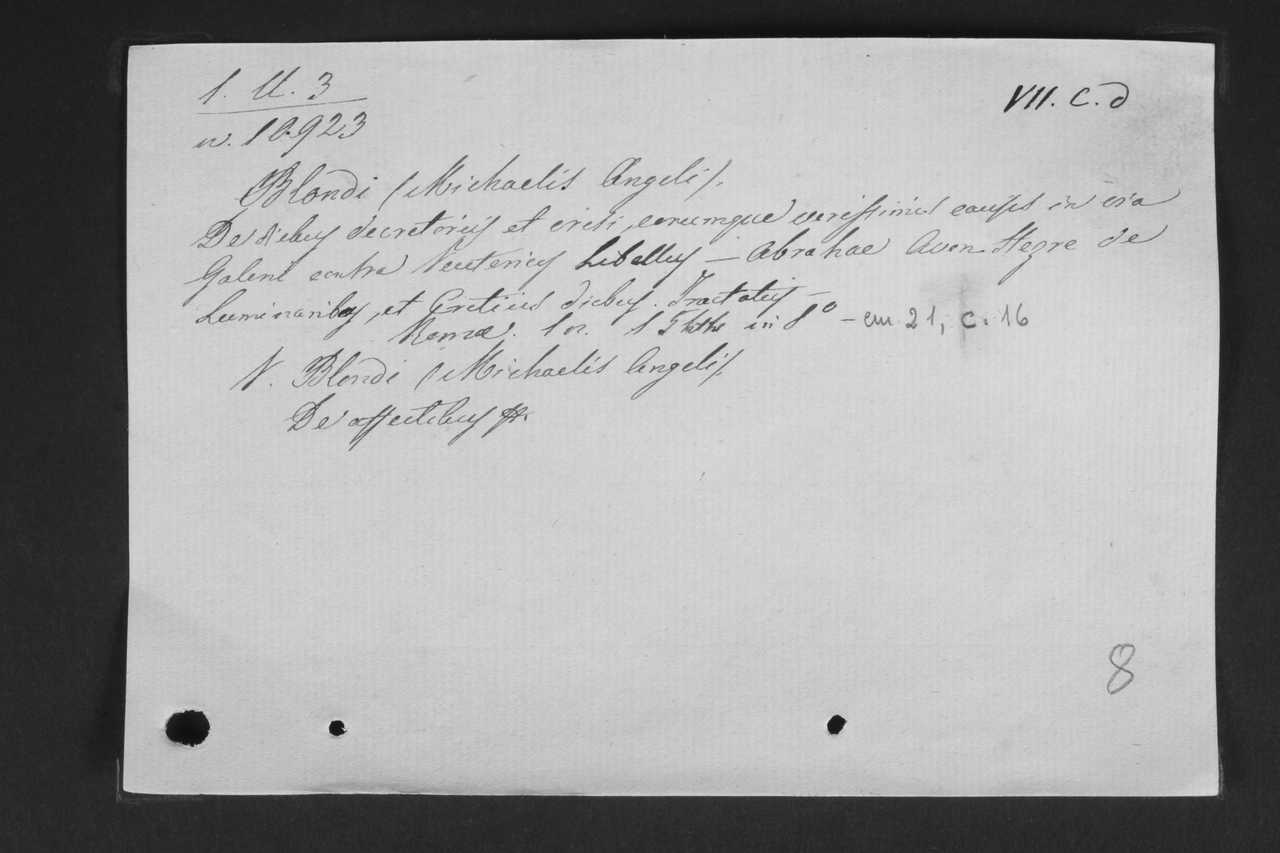 1. U. 3
VII. C. d
n. 10923
Blondi (Michaelis Angeli).
De diebus decretoriis et crisi, eorumque verissimis causis in via
Galeni contra Neutericos Libellus — Abrahae Aven-Hezre de
Luminaribus, et Creticis diebus. Tractatus —
Romae. in 8° — cm 21, c. 16
V. Blondi (Michaelis Angeli).
De affectibus
8